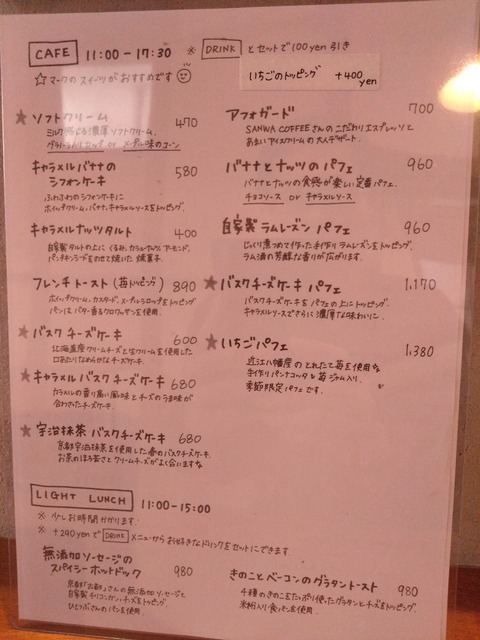 CAFE 11:00-17:30 ※ DRINK とセットで100yen引き
☆マークのスイーツがおすすめです
いちごのトッピング +400yen
★ソフトクリーム 470
ミルク感じる濃厚ソフトクリーム。
グラハムカップ or メープル味のコーン
キャラメルバナナの
シフォンケーキ 580
ふわふわのシフォンケーキに
ホイップクリーム、バナナ、キャラメルソースをトッピング。
キャラメルナッツタルト 400
自家製タルトの上に くるみ、カシューナッツ、アーモンド、
パンプキンシードをのせて焼いた 焼菓子。
フレンチトースト(苺トッピング) 890
ホイップクリーム、カスタード、メープルシロップをトッピング
パンは、バター香るクロワッサンを使用。
★バスクチーズケーキ 600
北海道産クリームチーズと生クリームを使用した
口あたりなめらかなチーズケーキ。
★キャラメルバスクチーズケーキ 680
カラメルの香り高い風味とチーズのうま味が
合わさったチーズケーキ。
★宇治抹茶バスクチーズケーキ 680
京都宇治抹茶を使用した春のバスクチーズケーキ。
お茶のほろ苦さとクリームチーズがよく合いますよ
アフォガード 700
SANWA COFFEEさんのこだわりエスプレッソと
あまいアイスクリームの大人デザート。
バナナとナッツのパフェ 960
バナナとナッツの食感が楽しい定番パフェ。
チョコソース or キャラメルソース
自家製ラムレーズンパフェ 960
じっくり煮つめて作った手作りラムレーズンをトッピング。
ラム酒の芳醇な香りが広がります。
★バスクチーズケーキパフェ 1,170
バスクチーズケーキをパフェの上にトッピング。
キャラメルソースでさらに濃厚な味わいに。
★いちごパフェ 1,380
近江八幡産のとれたて苺を使用な
手作りパンナコッタと苺ジャム入り。
季節限定パフェです。
LIGHT LUNCH 11:00-15:00
※ 少しお時間かかります。
※ +290yenで DRINK メニューからお好きなドリンクをセットにできます
無添加ソーセージの
スパイシーホットドック 980
京都「お都」さんの無添加ソーセージと
自家製チリコンカン、チーズをトッピング。
ひとつぶさんのパンを使用。
きのことベーコンのグラタントースト 980
4種のきのこをたっぷり使ったグラタンとチーズをトッピング。
米粉入り食パンを使用。